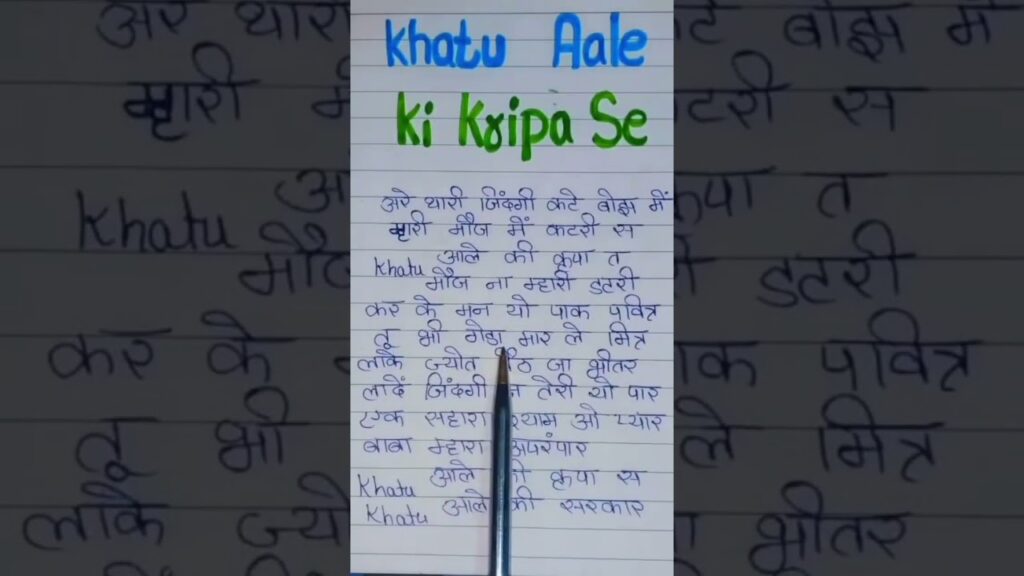 Khatu Aale
ki Kripa Se
अरे थारी जिंदगी कटे बोझ में
म्हारी मौज में कटरी स
Khatu आले की कृपा त
मौज ना म्हारी डटरी
कर के मन यो पाक पवित्र
तू भी गेड़ा मार ले मित्र
लाके ज्योत जा भीतर
लादें जिंदगी तेरी यो पार
एक सहारा श्याम ओ प्यार
बाबा म्हारा अपरंपार
Khatu आले की कृपा स
Khatu आले की सरकार